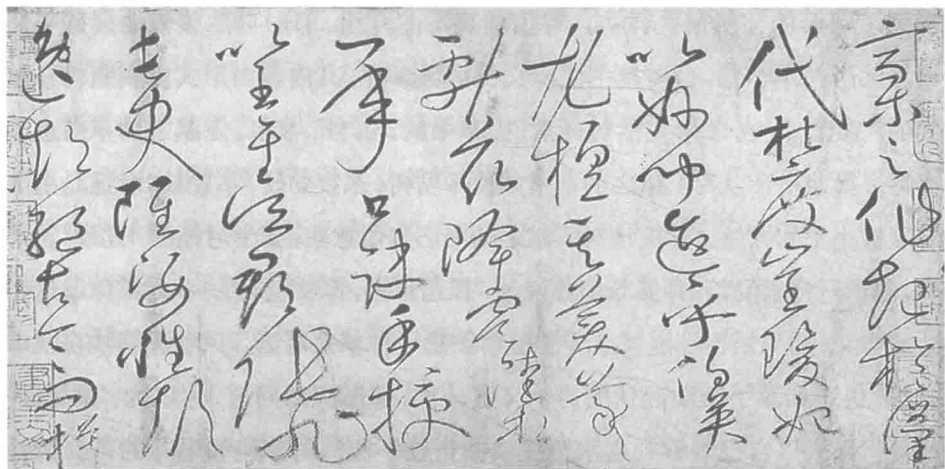 稾之作起於漢
代杜度崔瑗始
以妙聞迨乎伯英
尤擅其美羲獻
茲降虞陸相
承口訣手授
以至于吳郡張旭
長史雖姿性顛
逸超絕古今而模